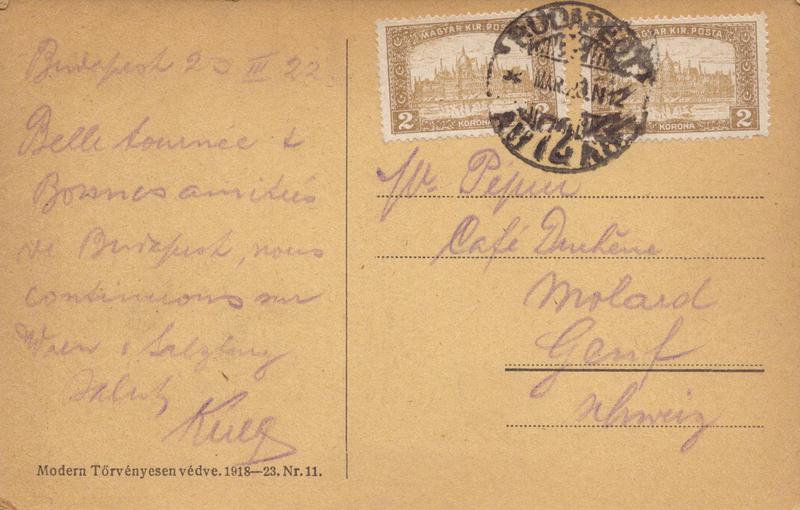 Budapest 23 III 22.
Belle tournée &
Bonnes amitiés
de Budapest, nous
continuons sur
Wien & Salzburg
Salut
MAGYAR KIR. POSTA
2
KORONA
MAGYAR KIR. POSTA
KORONA
2
BUDAPEST
Café Duchêne
Molard
Genf
Schweiz
Modern Törvényesen védve. 1918—23. Nr. 11.